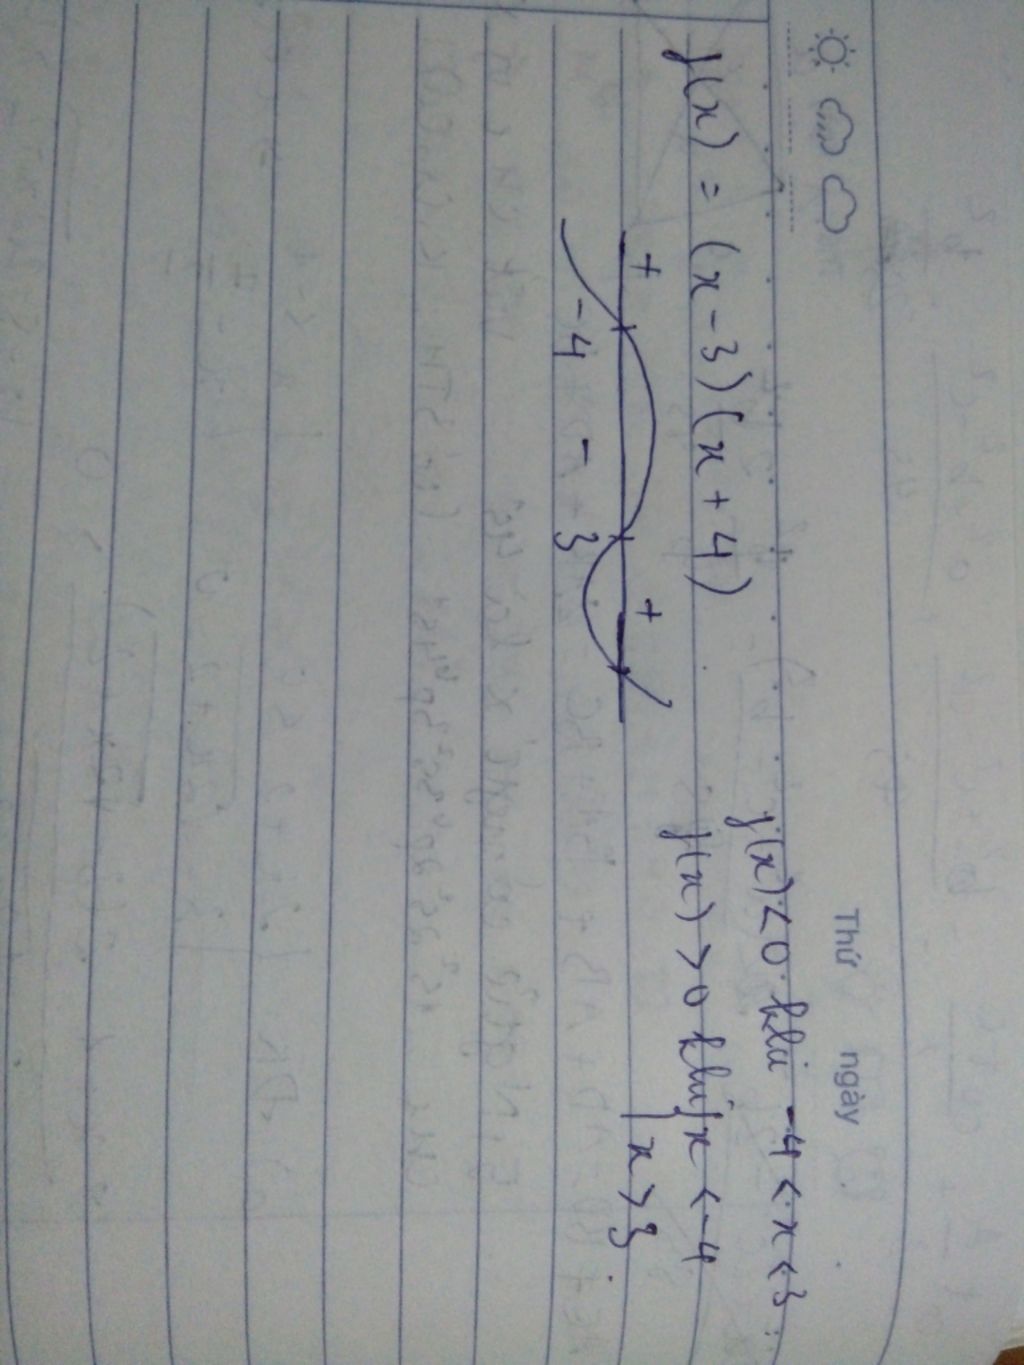 Thứ ngày
f(x) = (x-3)(x+4)
f(x) < 0 khi -4 < x < 3
f(x) > 0 khi x < -4
x > 3
+ +
-4 - 3